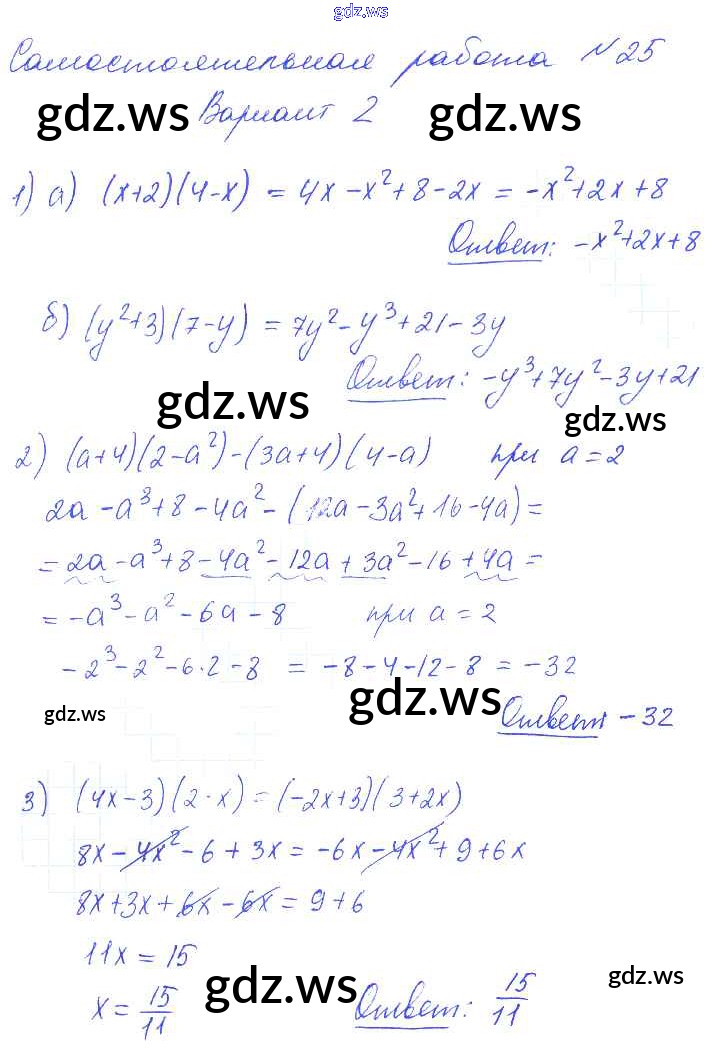 gdz.ws
Самостоятельная работа №25
gdz.ws Вариант 2 gdz.ws
1) а) (x+2)(4-x) = 4x-x²+8-2x = -x²+2x+8
Ответ: -x²+2x+8
б) (y²+3)(7-y) = 7y²-y³+21-3y
Ответ: -y³+7y²-3y+21
gdz.ws gdz.ws
2) (a+4)(2-a²)-(3a+4)(4-a) при a=2
2a-a³+8-4a²-(12a-3a²+16-4a)=
=2a-a³+8-4a²-12a+3a²-16+4a=
=-a³-a²-6a-8 при a=2
-2³-2²-6·2-8 = -8-4-12-8 = -32
gdz.ws gdz.ws
Ответ: -32
3) (4x-3)(2-x)=(-2x+3)(3+2x)
8x-4x²-6+3x=-6x-4x²+9+6x
8x+3x+6x-6x=9+6
11x=15
x=15/11 gdz.ws Ответ: 15/11 gdz.ws